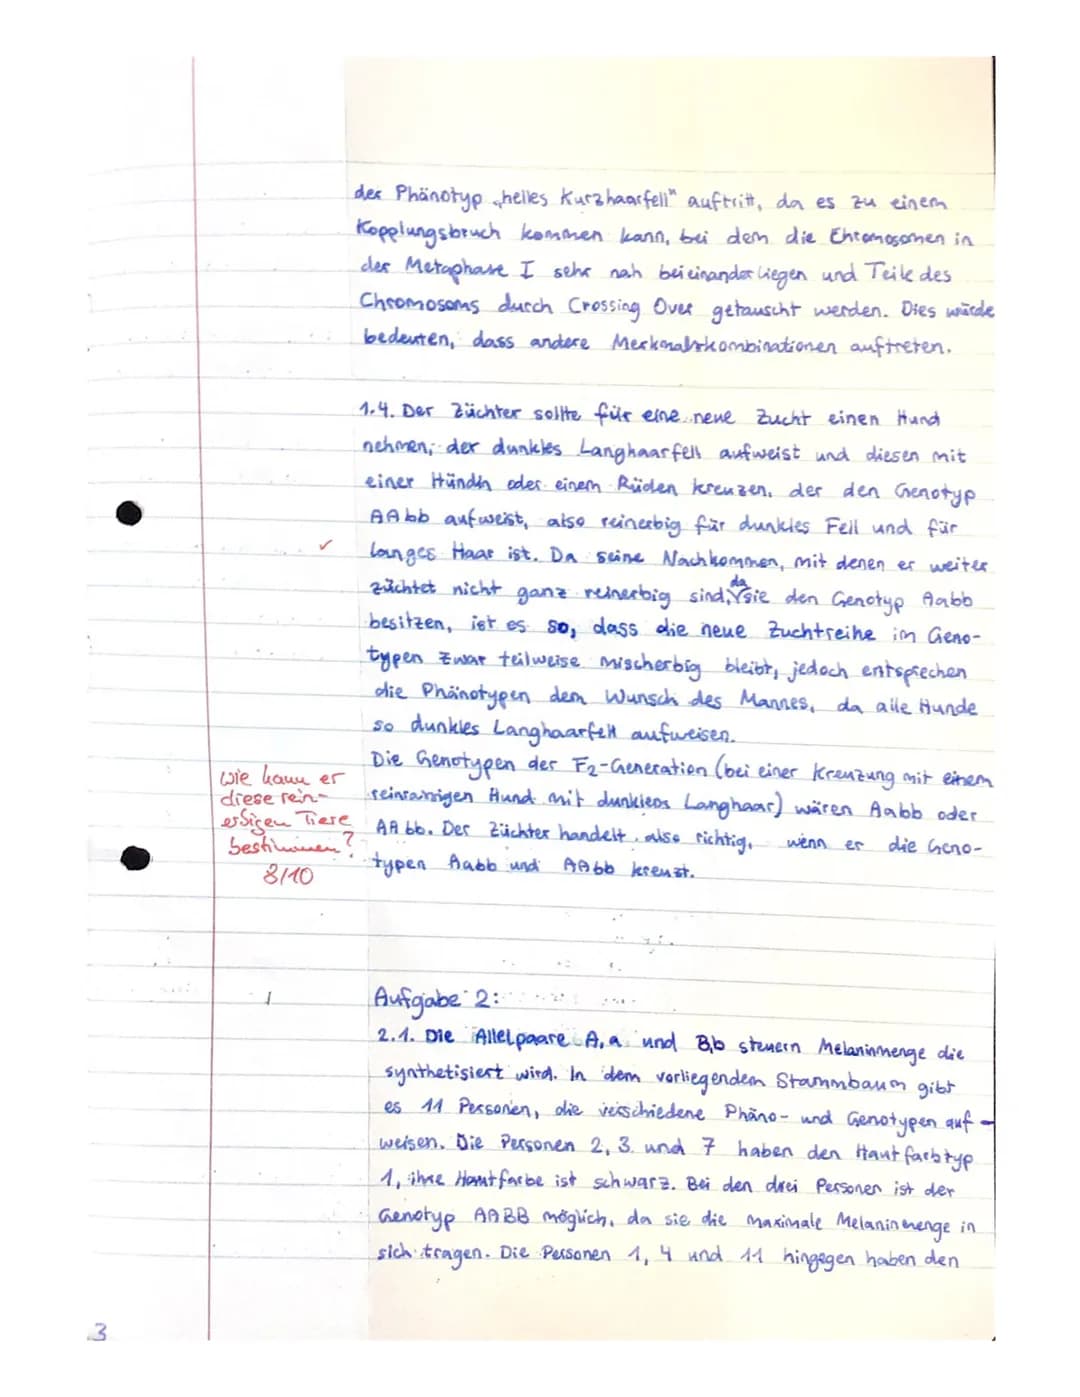 der Phänotyp „helles Kurzhaarfell" auftritt, da es zu einem
Kopplungsbruch kommen kann, bei dem die Chromosomen in
der Metaphase I sehr nah beieinander liegen und Teile des
Chromosoms durch Crossing Over getauscht werden. Dies würde
bedeuten, dass andere Merkmalskombinationen auftreten.
1.4. Der Züchter sollte für eine neue Zucht einen Hund
nehmen, der dunkles Langhaarfell aufweist und diesen mit
einer Hündin oder einem Rüden kreuzen, der den Genotyp
AAbb aufweist, also reinerbig für dunkles Fell und für
langes Haar ist. Da seine Nachkommen, mit denen er weiter
züchtet nicht ganz reinerbig sind, da sie den Genotyp Aabb
besitzen, ist es so, dass die neue Zuchtreihe im Geno-
typen zwar teilweise mischerbig bleibt, jedoch entsprechen
die Phänotypen dem Wunsch des Mannes, da alle Hunde
so dunkles Langhaarfell aufweisen.
Die Genotypen der F2-Generation (bei einer Kreuzung mit einem
reinrassigen Hund mit dunklem Langhaar) wären Aabb oder
AAbb. Der Züchter handelt also richtig, wenn er die Geno-
typen Aabb und AAbb kreuzt.
wie kann er
diese rein-
erbigen Tiere
bestimmen?
8/10
Aufgabe 2:
2.1. Die Allelpaare A,a und B,b steuern Melaninmenge die
synthetisiert wird. In dem vorliegendem Stammbaum gibt
es 11 Personen, die verschiedene Phäno- und Genotypen auf-
weisen. Die Personen 2, 3 und 7 haben den Hautfarbtyp
1, ihre Hautfarbe ist schwarz. Bei den drei Personen ist der
Genotyp AABB möglich, da sie die maximale Melaninmenge in
sich tragen. Die Personen 1, 4 und 11 hingegen haben den
3